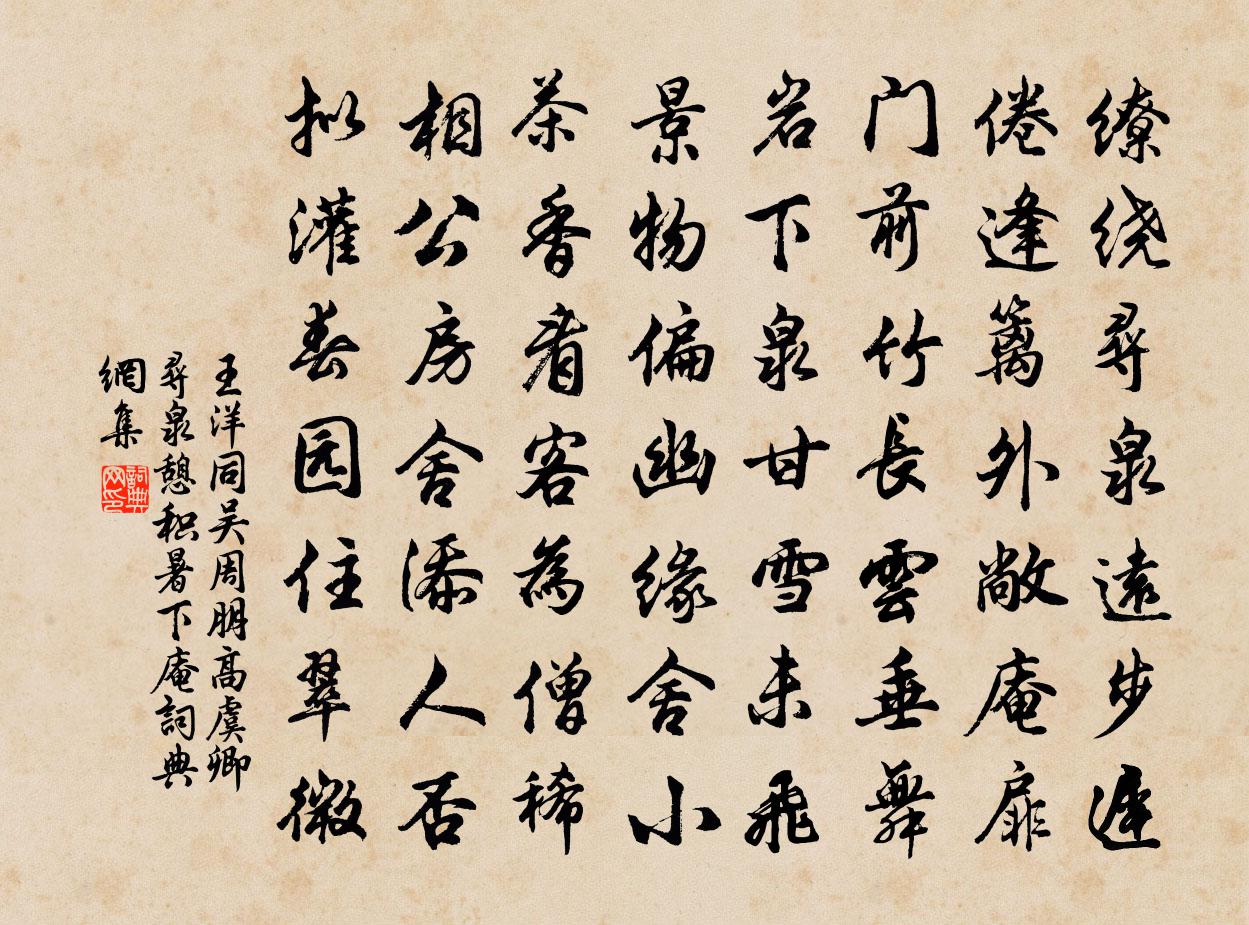 缭绕寻泉远步迟
倦逢篱外敞庵扉
门前竹長雲垂舞
岩下泉甘雪未飛
景物偏幽缘舍小
茶香看客為僧稀
相公房舍添人否
拟灌春园住翠微
王洋同吴周朋高虞卿
尋泉憩积暑下庵詞典
網集
詞典网印